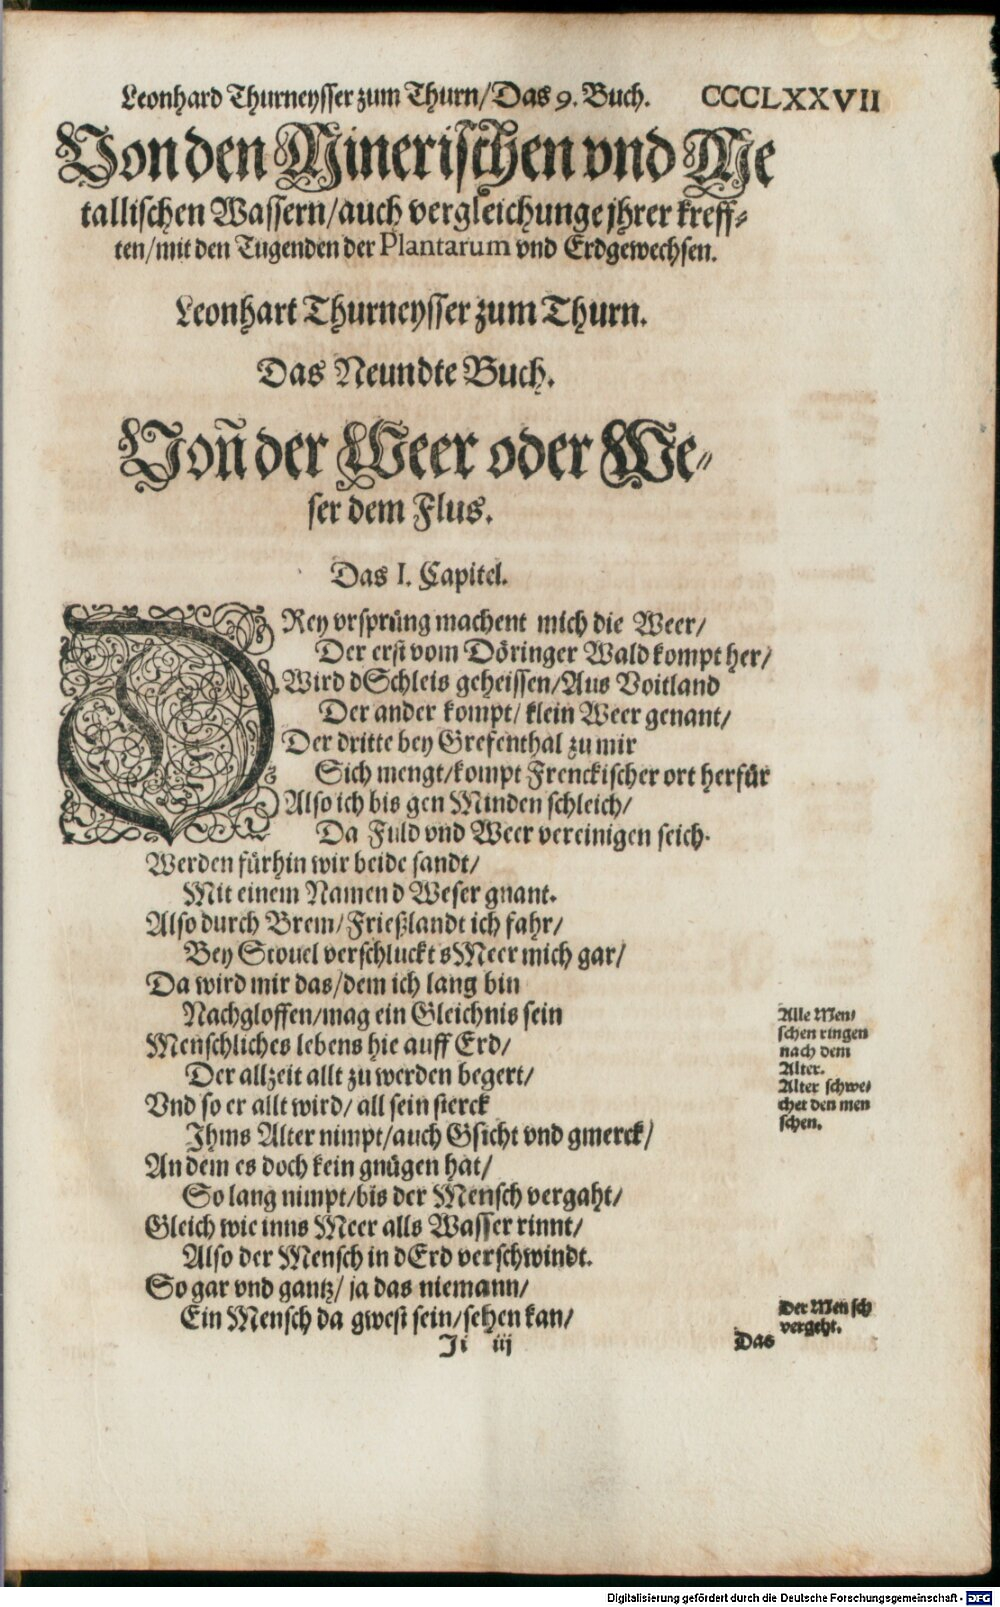 Leonhard Thurneysser zum Thurn/Das 9. Buch. CCCLXXVII
Von den Minerischen vnd Me
tallischen Wassern/auch vergleichunge jhrer kreff-
ten/mit den Tugenden der Plantarum vnd Erdgewechsen.
Leonhart Thurneysser zum Thurn.
Das Neundte Buch.
Von̄ der Weer oder We-
ser dem Flus.
Das I. Capitel.
DRey vrsprüng machent mich die Weer/
Der erst vom Döringer Wald kompt her/
Wird dSchleis geheissen/Aus Voitland
Der ander kompt/klein Weer genant/
Der dritte bey Grefenthal zu mir
Sich mengt/kompt Frenckischer ort herfür
Also ich bis gen Minden schleich/
Da Fuld vnd Weer vereinigen seich.
Werden fürhin wir beide sandt/
Mit einem Namen d Weser gnant.
Also durch Brem/Frießlandt ich fahr/
Bey Stouel verschluckt sMeer mich gar/
Da wird mir das/dem ich lang bin
Nachgloffen/mag ein Gleichnis sein
Menschliches lebens hie auff Erd/
Der allzeit allt zu werden begert/
Vnd so er allt wird/all sein sterck
Ihms Alter nimpt/auch Gsicht vnd gmerck/
An dem es doch kein gnügen hat/
So lang nimpt/bis der Mensch vergaht/
Gleich wie inns Meer alls Wasser rinnt/
Also der Mensch in dErd verschwindt.
So gar vnd gantz/ja das niemann/
Ein Mensch da gwest sein/sehen kan/
Alle Men-
schen ringen
nach dem
Alter.
Alter schwe-
chet den men
schen.
Der Mensch
vergeht.
Ii iij
Das
Digitalisierung gefördert durch die Deutsche Forschungsgemeinschaft - DFG